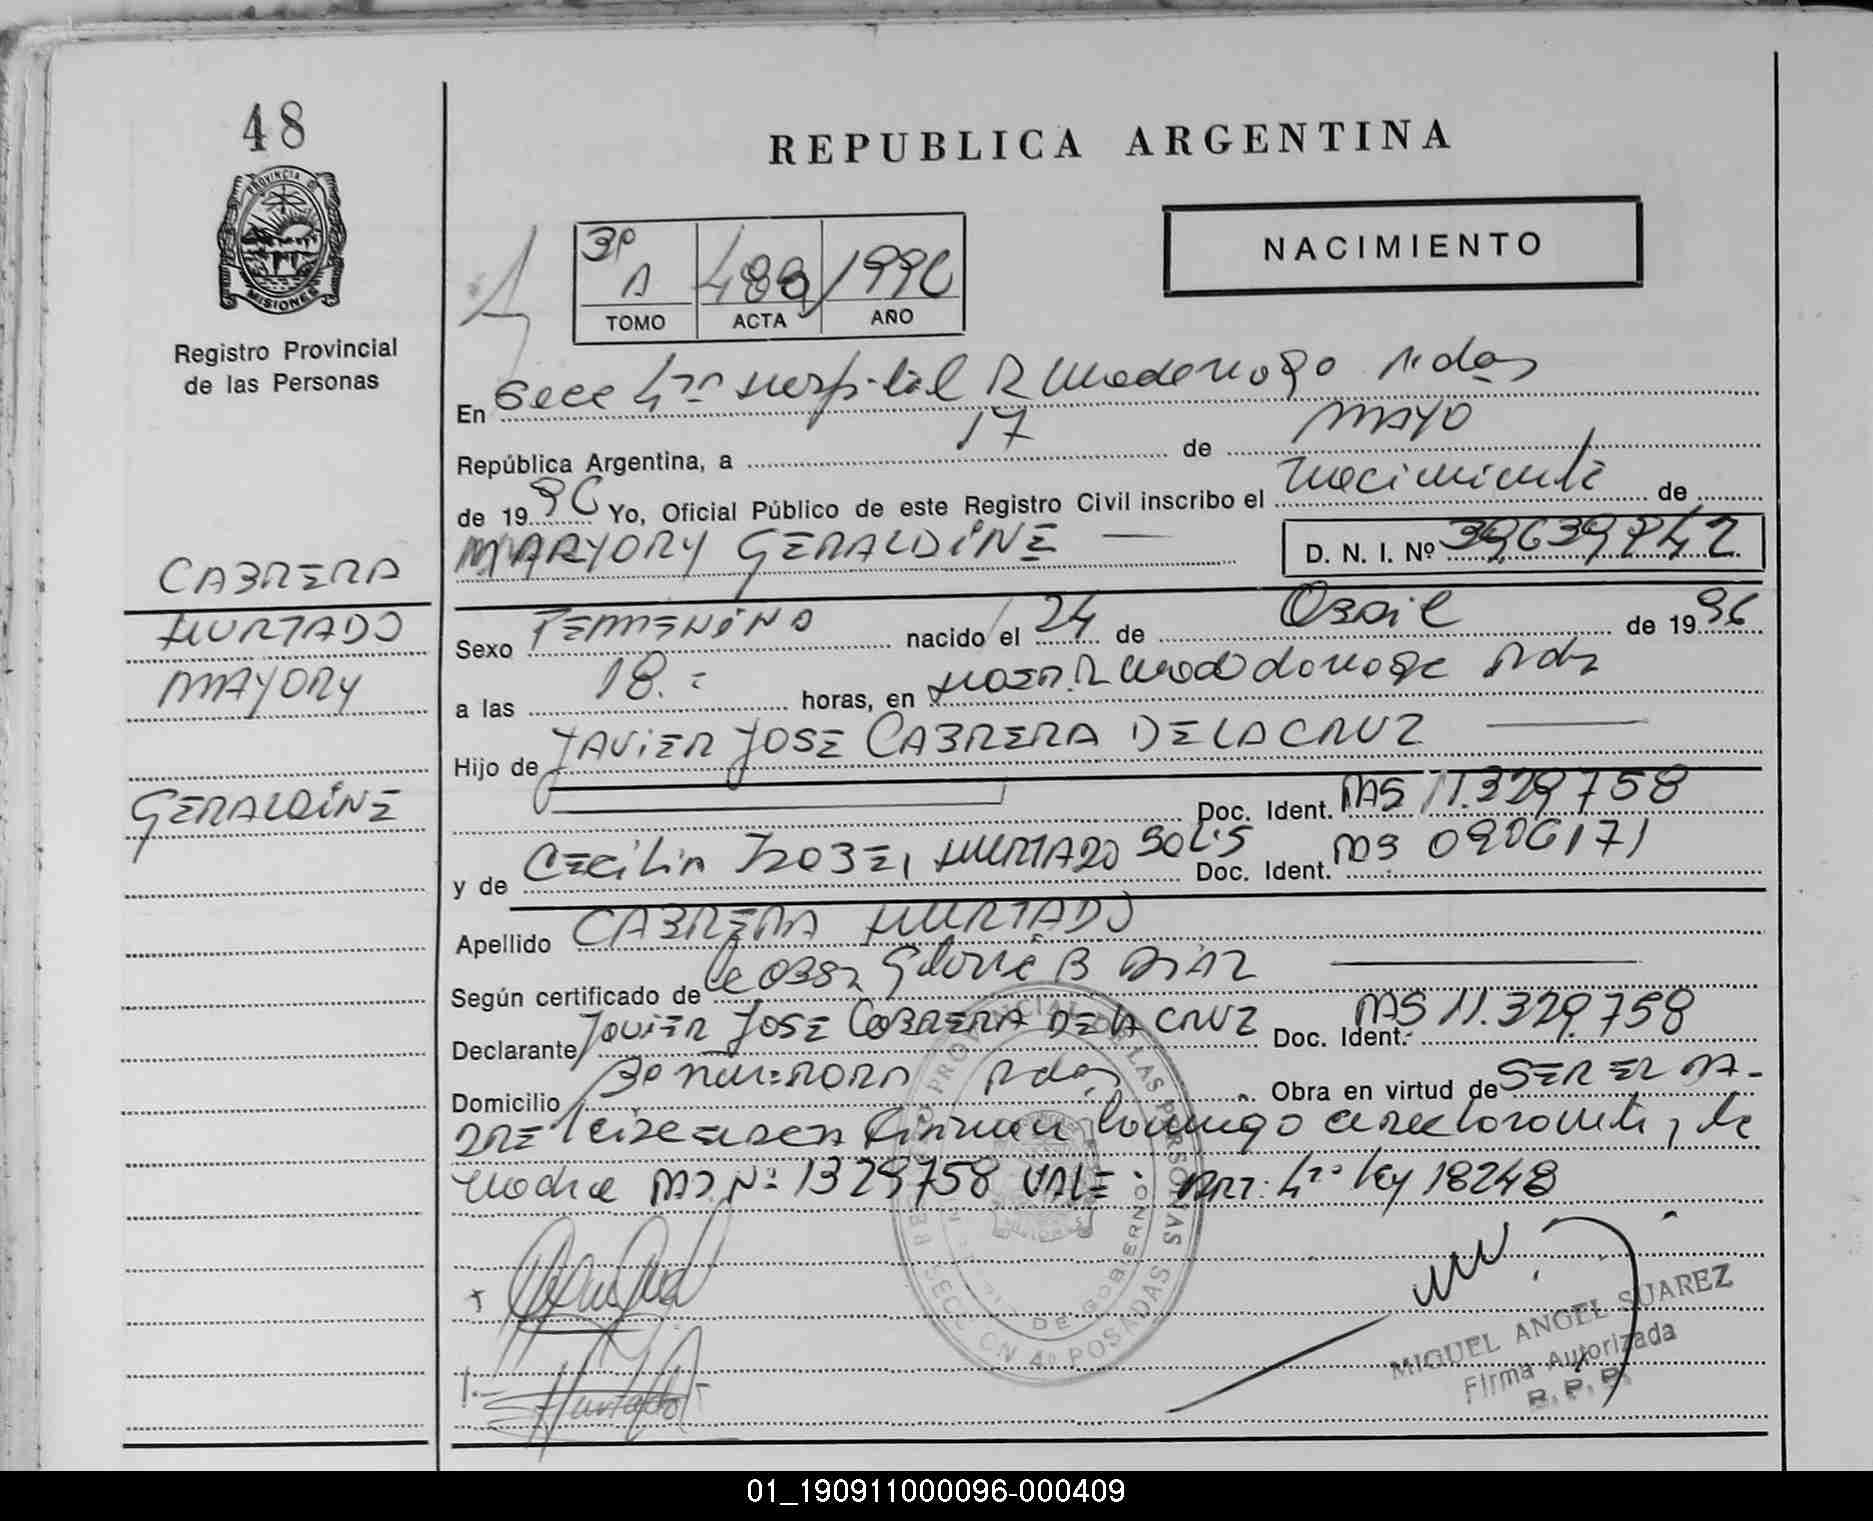 48
PROVINCIA D
MISIONES
Registro Provincial
de las Personas
REPUBLICA ARGENTINA
NACIMIENTO
3º A 488 1996
TOMO ACTA AÑO
En Secc 4ta Hospital R Madariaga Pdas
República Argentina, a 17 de MAYO
de 1996 Yo, Oficial Público de este Registro Civil inscribo el nacimiento de
MARYORY GERALDINE D. N. I. Nº 39639742
CABRERA
HURTADO
MAYORY
GERALDINE
Sexo FEMENINO nacido el 24 de Abril de 1996
a las 18.= horas, en HOSP. R Pdas
Hijo de JAVIER JOSE CABRERA DE LA CRUZ
Doc. Ident. MS 11.329.758
y de CECILIA ISABEL HURTADO SOLIS Doc. Ident. 0906171
Apellido CABRERA HURTADO
Según certificado de la OBST Gloria B DIAZ
Declarante JAVIER JOSE CABRERA DE LA CRUZ Doc. Ident. MS 11.329.758
Domicilio Pdas Obra en virtud de SER EL PA-
DRE Firman conmigo el declarante y la
madre Nº 1329758 VALE: ART. 4to Ley 18248
PROVINCIAL DE LAS PERSONAS
DE GOBIERNO
SECCION 4ª POSADAS
Hurtado
MIGUEL ANGEL SUAREZ
Firma Autorizada
R. P. P.
01_190911000096-000409